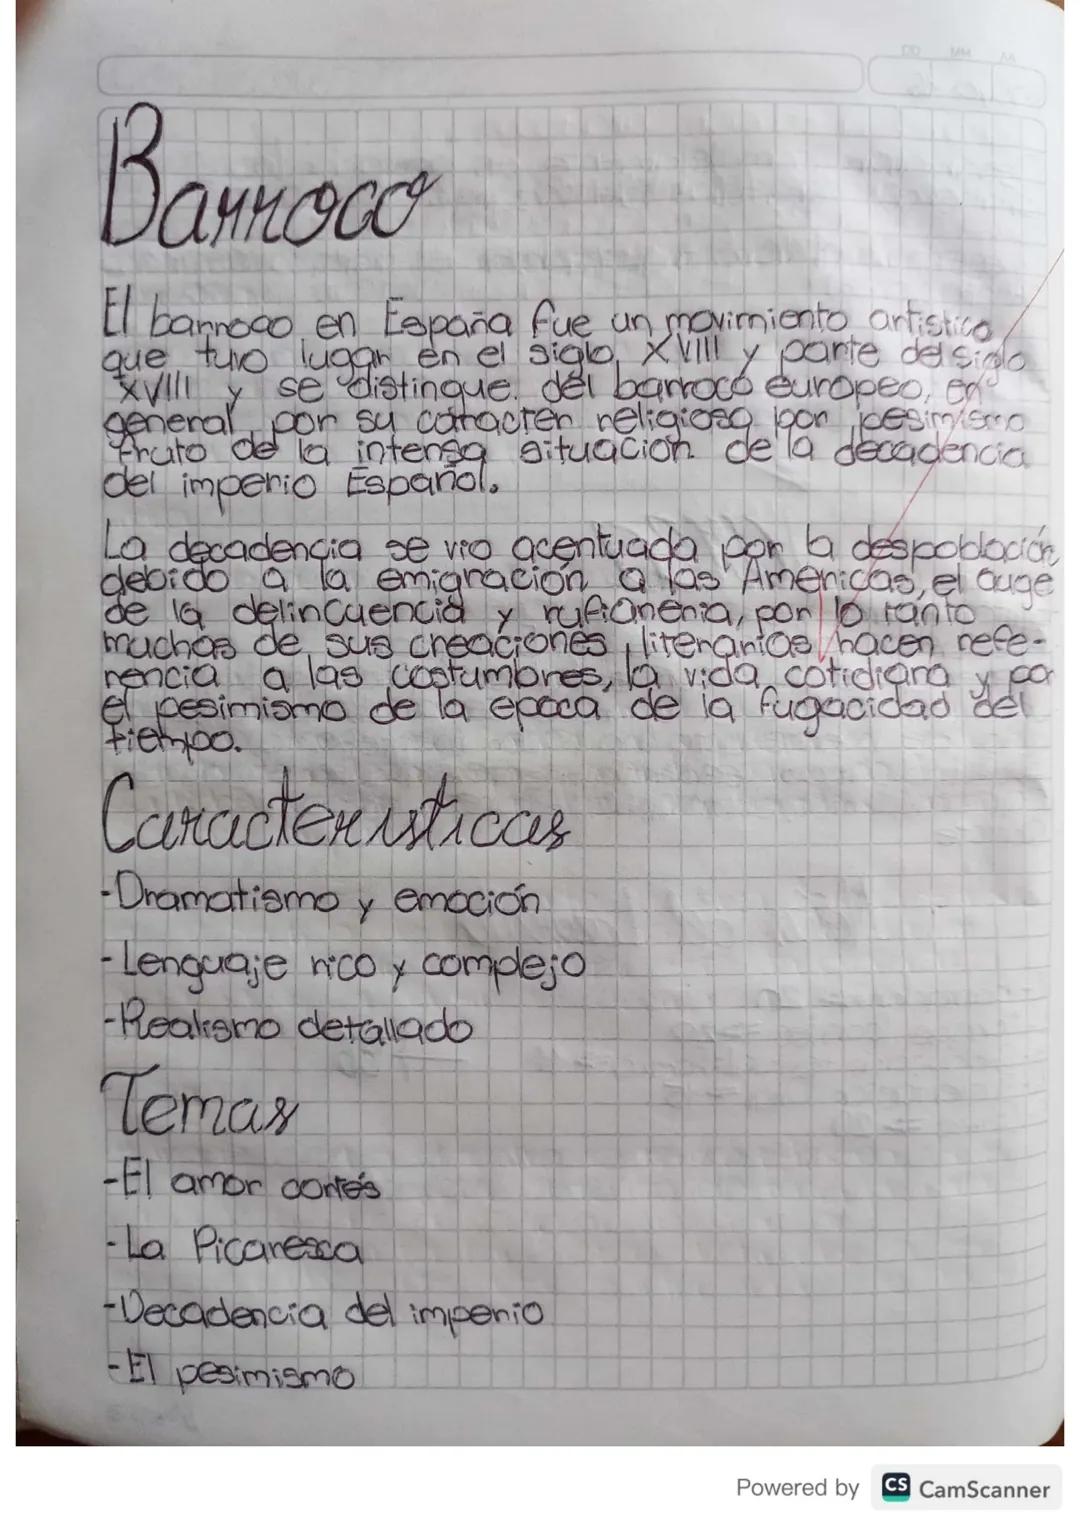 Barroco
El barroco en España fue un movimiento artistico
que tuvo lugar en el siglo XVIII y parte del siglo
XVIII y se distingue del barroco europeo, en
general, por su caracter religioso por pesimismo
fruto de la intensa situación de la decadencia
del imperio Español.
La decadencia se vio acentuada por la despoblación
debido a la emigración a las Américas, el auge
de la delincuencia y rufianeria, por lo tanto
muchas de sus creaciones literarias hacen refe-
rencia a las costumbres, la vida cotidiana y por
el pesimismo de la epoca de la fugacidad del
tiempo.
Caracteristicas
-Dramatismo y emoción
-Lenguaje rico y complejo
-Realismo detallado
Temas
-El amor cortés
-La Picaresca
-Decadencia del imperio
-El pesimismo
Powered by CS CamScanner